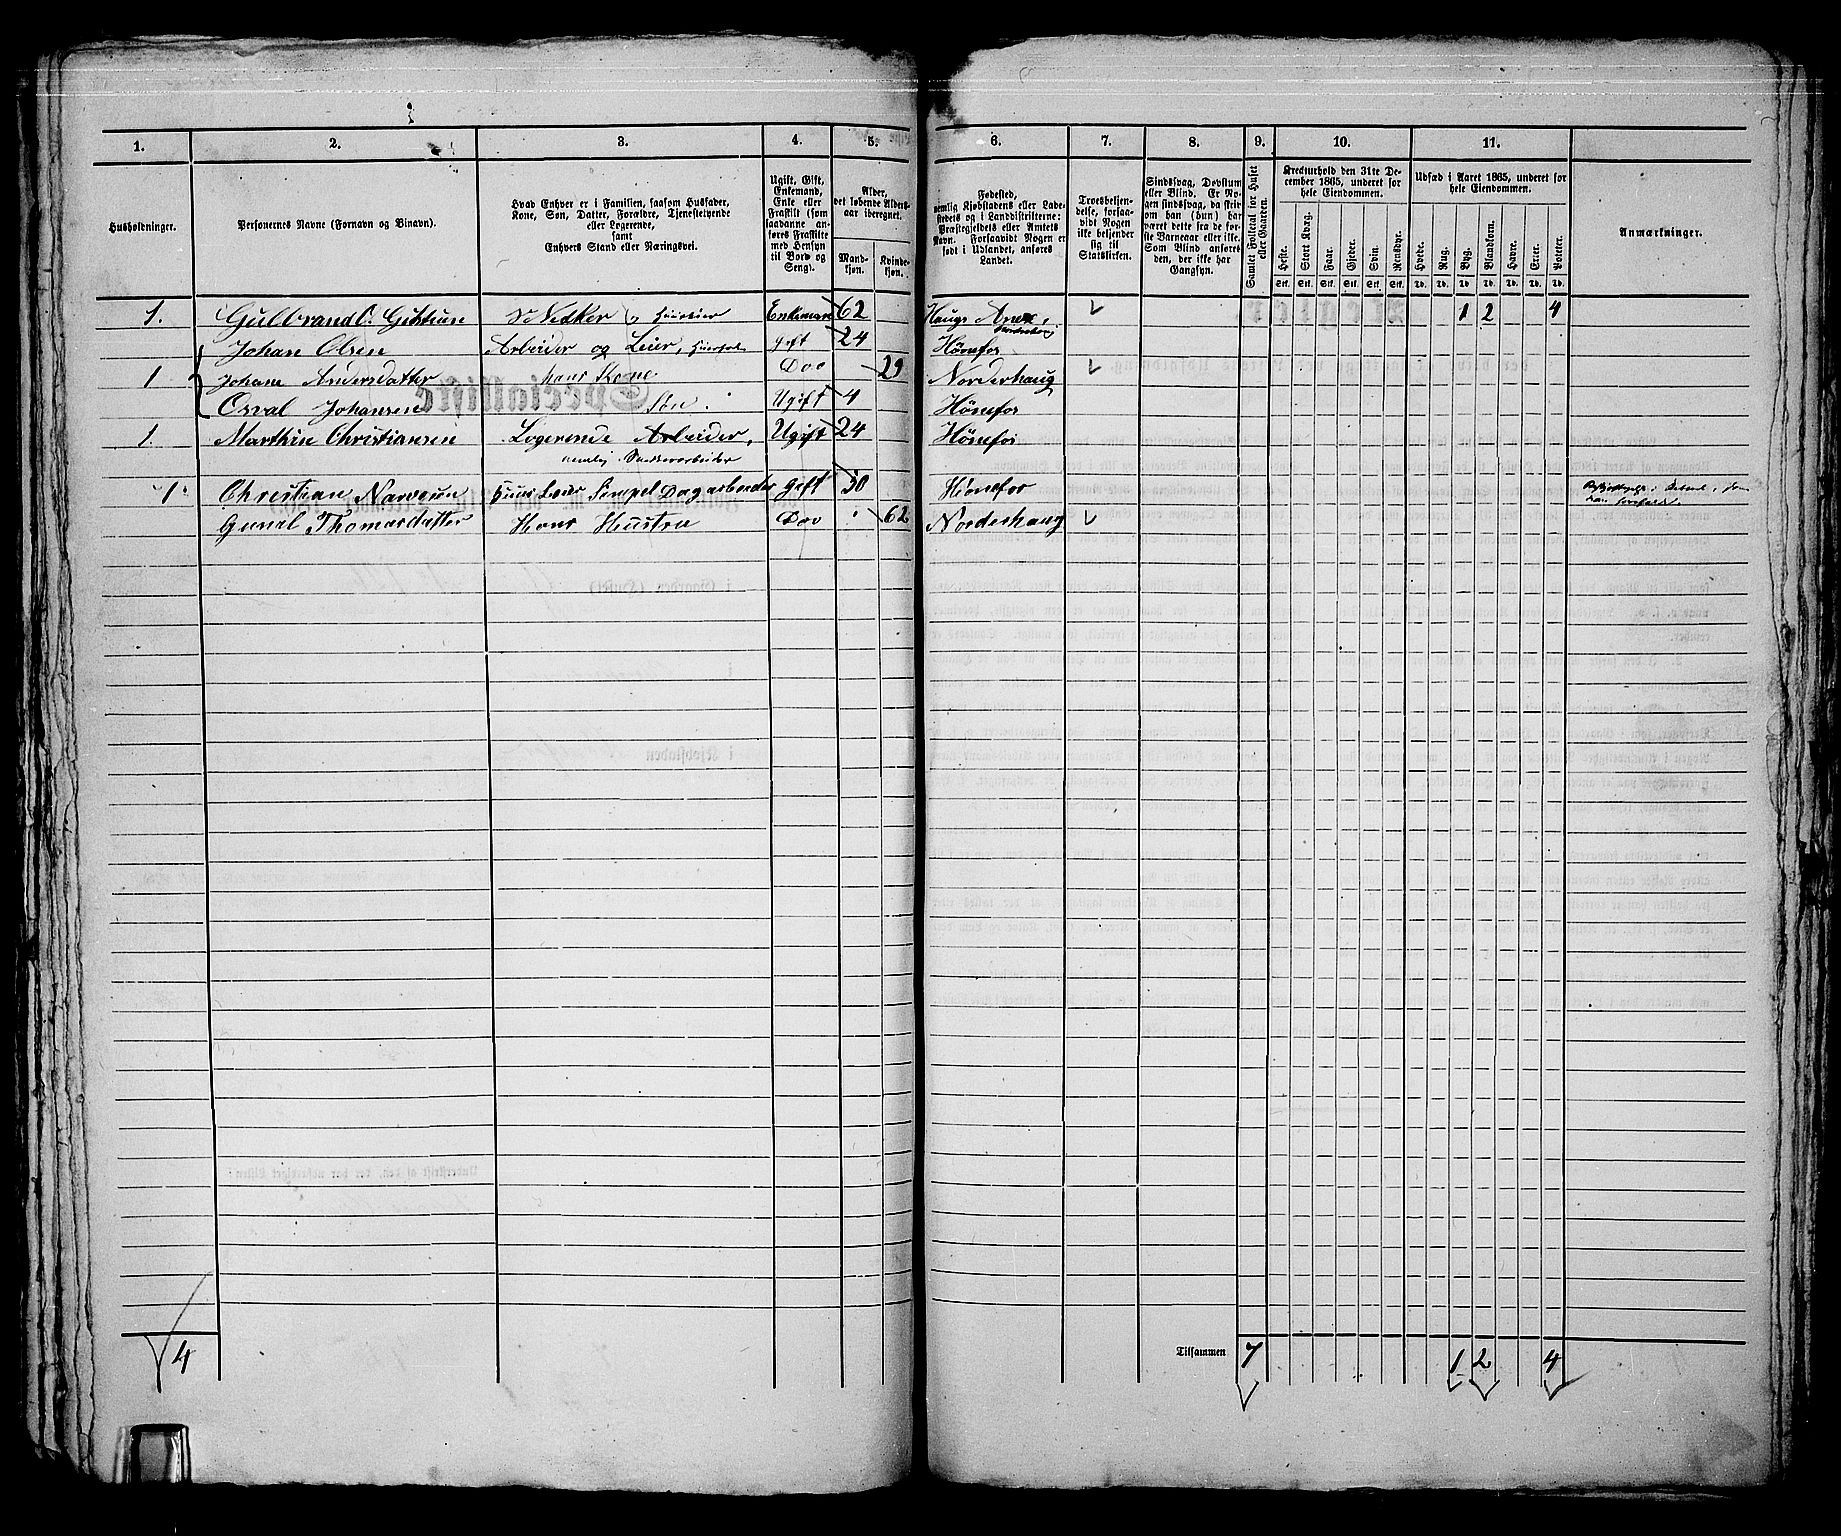 1. 2. 3. 4. 5. 6. 7. 8. 9. 10. 11.
Husholdninger.
Personernes Navne (Fornavn og Binavn).
Hvad Enhver er i Familien, saasom Husfader,
Kone, Søn, Datter, Forældre, Tjenestetyende
eller Logerende,
samt
Enhvers Stand eller Næringsvei.
Ugift, Gift,
Enkemand,
Enke eller
Fraskilt (som
saadanne an-
føres Fraskilte
med Hensyn
til Bord og
Seng).
Alder,
det løbende Alders-
aar iberegnet.
Mand-
kjøn.
Kvinde-
kjøn.
Fødested,
nemlig Kjøbstadens eller Lade-
stedets og i Landdistrikterne:
Præstegjeldets eller Amtets
Navn. Forsaavidt Nogen er
født i Udlandet, anføres
Landet.
Troesbekjen-
delse, forsaa-
vidt Nogen
ikke bekjender
sig til
Statskirken.
Sindssvag, Døvstum
eller Blind. Er No-
gen sindssvag, da skriv
om han (hun) har
været dette fra de før-
ste Barneaar eller ikke.
Som Blind anføres
den, der ikke har
Gangsyn.
Samlet Folketal for Huset
eller Gaarden.
Kreaturhold den 31te De-
cember 1865, underet for
hele Eiendommen.
Heste. Stort Kvæg. Faar. Gjeder. Svin. Rensdyr.
Stk. Stk. Stk. Stk. Stk. Stk.
Udsæd i Aaret 1865, underet for
hele Eiendommen.
Hvede. Rug. Byg. Blandkorn. Havre. Erter. Poteter.
Td. Td. Td. Td. Td. Td. Td.
Anmærkninger.
1. Gulbrand O. Enkemand 62 Haugs Anex, 1 2 4
Johan Olsen Arbeider og Leier, Gift 24 Hønefos
1 Johane Andersdatter hans Kone Do 29 Norderhaug
Osval Johansen Søn Ugift 4 Hønefos
1. Marthin Christiansen Logerende Arbeider, Ugift 24 Hønefos
nemlig
1 Christian Gift 50 Hønefos
Thomasdatter Hans Hustru Do 62 Norderhaug
4 Tilsammen 7 1 2 4